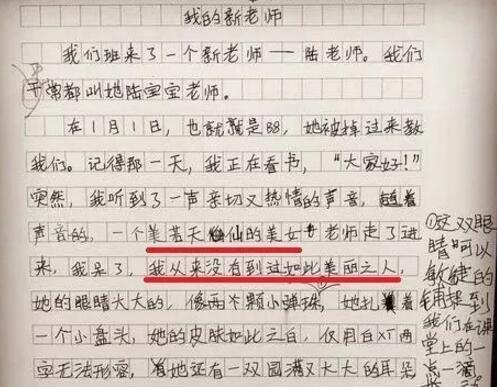 我的新老师
我们班来了一个新老师——陆老师。我们
平常都叫她陆宝宝老师。
在1月1日，也就是88，她被掉过来教
我们。记得那一天，我正在看书，“大家好！”
突然，我听到了一声亲切又热情的声音，随着
声音的，一个美若天仙的美女老师走了进
来，我呆了，我从来没有到过如此美丽之人，
她的眼睛大大的，像两个颗小弹珠，她扎着
一个小盘头，她的皮肤如此之白，仅用白雪两
字无法形容，她还有一双圆满又大大的耳朵
①这双眼
睛可以
敏捷的
捕捉到
我们在课
堂上的一
点一滴。